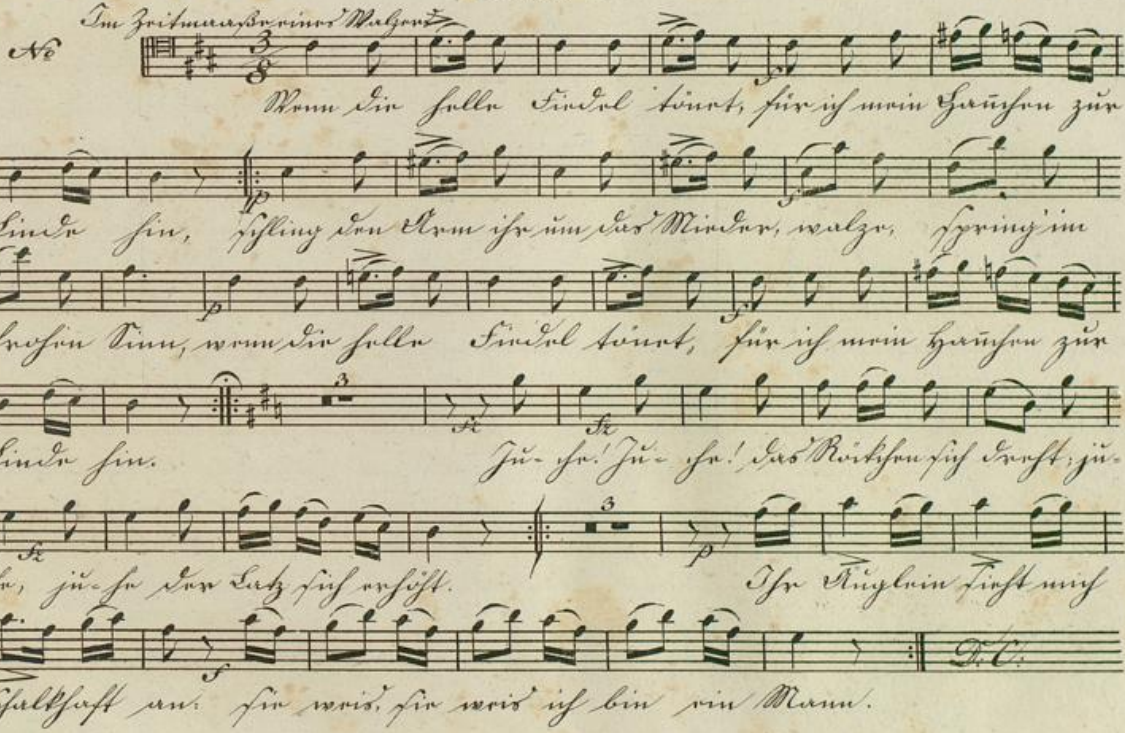 Im Zeitmaaße eines Walzers
No
Wenn die helle Fiedel tönet, für ich mein Hañchen zur
Linde hin, schling den Arm ihr um das Mieder, walze, spring' im
frohen Sinn, wenn die helle Fiedel tönet, für ich mein Hañchen zur
Linde hin. Ju- che! Ju- che! das Röckchen sich dreht; ju-
he, ju-he der Latz sich erhöht. Ihr Äuglein sieht mich
schalkhaft an: sie weis, sie weis ich bin ein Mann.
D: C: